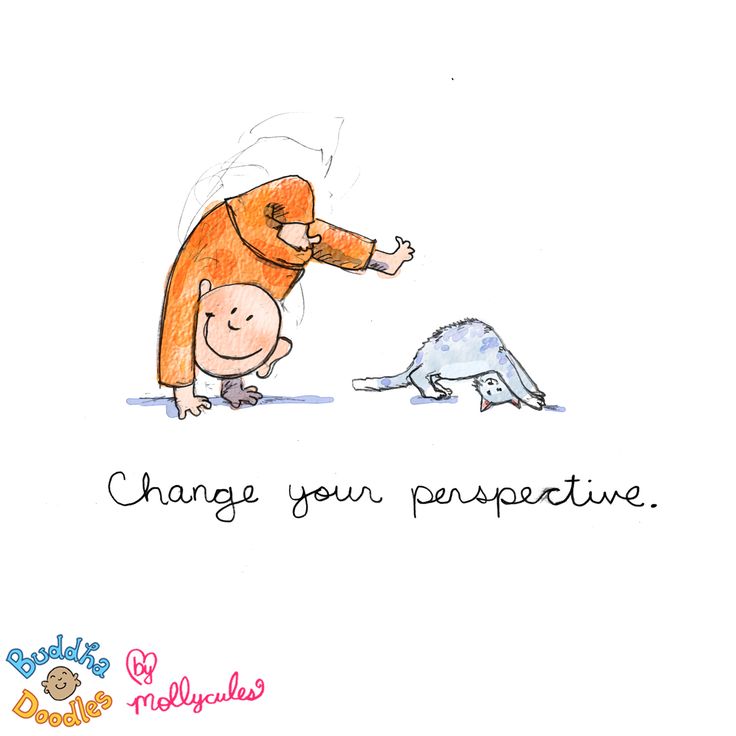 Change your perspective.
Buddha
Doodles
by
Mollycules